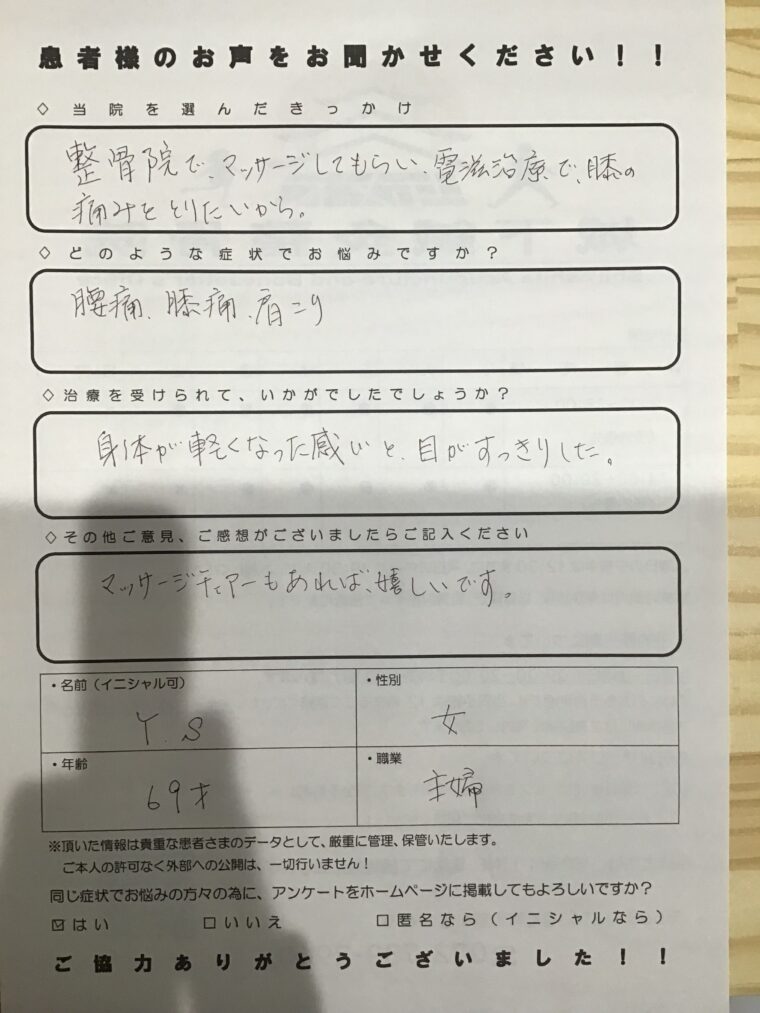 患者様のお声をお聞かせください！！
◇当院を選んだきっかけ
整骨院で、マッサージしてもらい、電滋治療で、膝の
痛みをとりたいから。
◇どのような症状でお悩みですか？
腰痛、膝痛、肩こり
◇治療を受けられて、いかがでしたでしょうか？
身体が軽くなった感じと、目がすっきりした。
◇その他ご意見、ご感想がございましたらご記入ください
マッサージチェアーもあれば、嬉しいです。
・名前（イニシャル可）
Y.S
・性別
女
・年齢
69才
・職業
主婦
※頂いた情報は貴重な患者さまのデータとして、厳重に管理、保管いたします。
ご本人の許可なく外部への公開は、一切行いません！
同じ症状でお悩みの方々の為に、アンケートをホームページに掲載してもよろしいですか？
☑はい □いいえ □匿名なら（イニシャルなら）
ご協力ありがとうございました！！